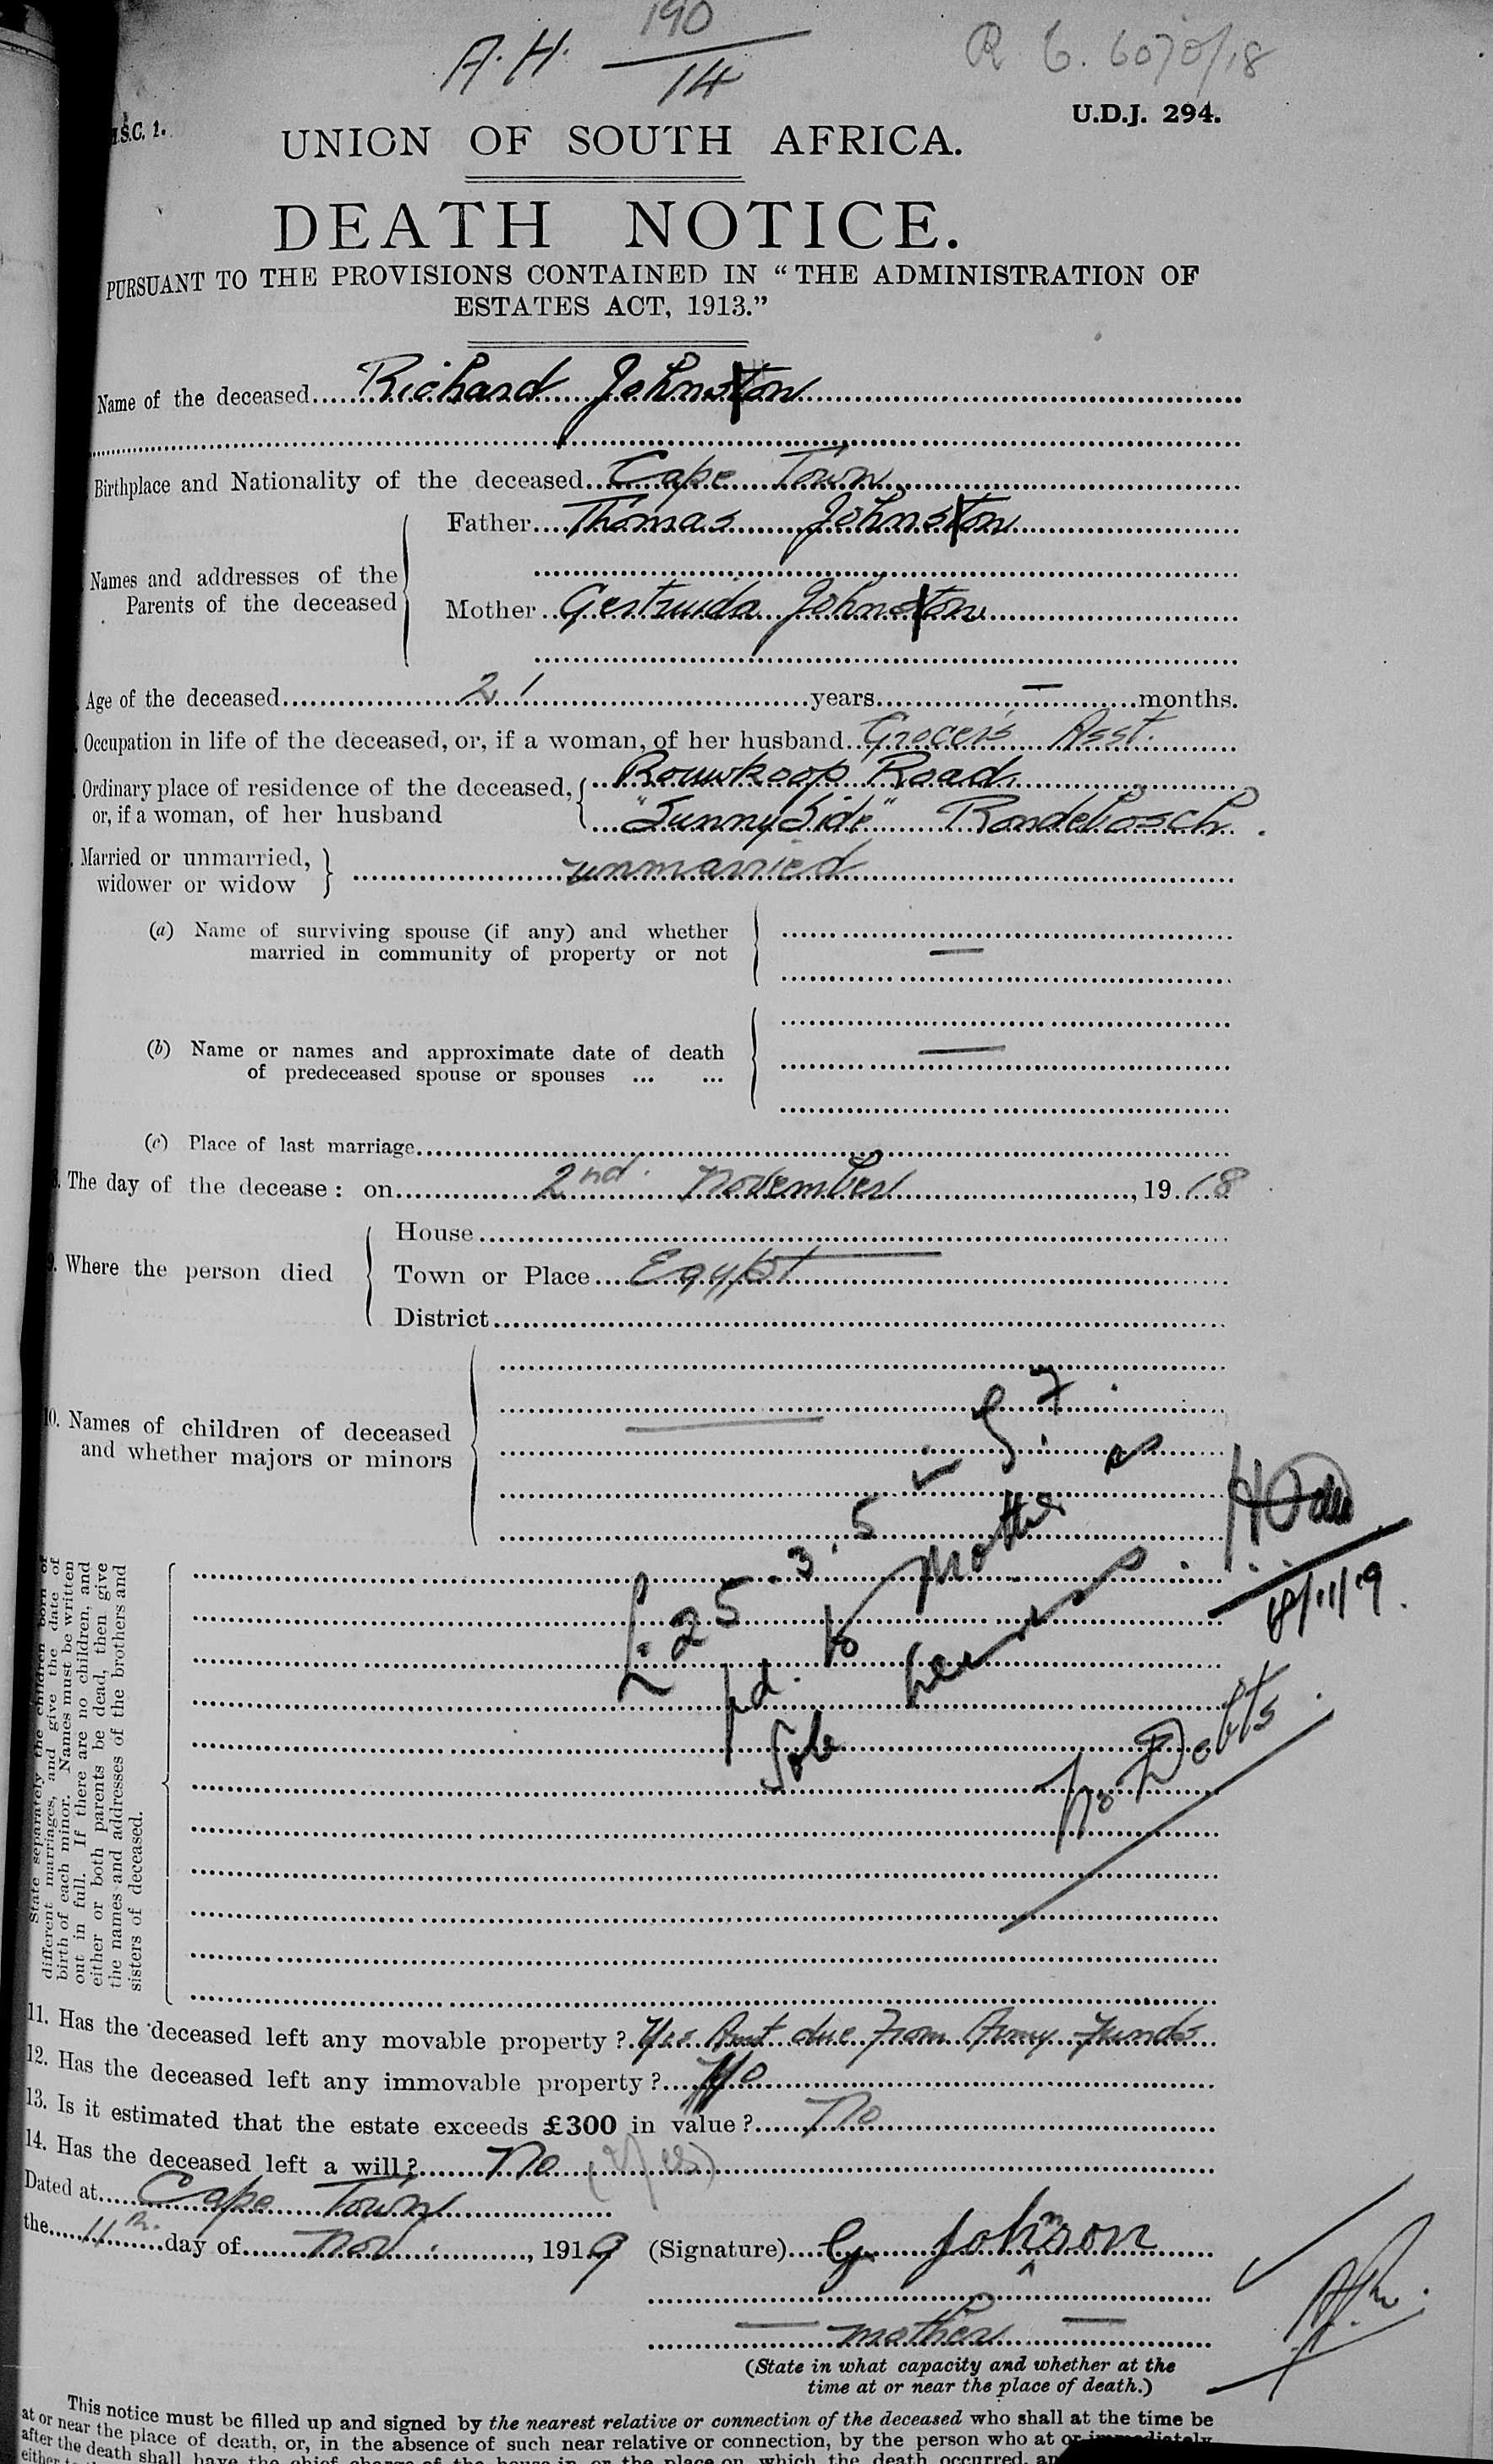 A.H. 190/14
R 6. 6070/18
U.D.J. 294.
UNION OF SOUTH AFRICA.
DEATH NOTICE.
PURSUANT TO THE PROVISIONS CONTAINED IN “THE ADMINISTRATION OF
ESTATES ACT, 1913.”
Name of the deceased Richard Johnston
Birthplace and Nationality of the deceased Cape Town
Names and addresses of the
Parents of the deceased
Father Thomas Johnston
Mother Gertruida Johnston
Age of the deceased 21 years — months.
Occupation in life of the deceased, or, if a woman, of her husband Grocer's Asst.
Ordinary place of residence of the deceased,
or, if a woman, of her husband
Rouwkoop Road
"Sunny Side" Rondebosch.
Married or unmarried,
widower or widow
unmarried
(a) Name of surviving spouse (if any) and whether
married in community of property or not
—
(b) Name or names and approximate date of death
of predeceased spouse or spouses ... ...
—
(c) Place of last marriage
The day of the decease: on 2nd. November, 1918
9. Where the person died
House
Town or Place Egypt
District
10. Names of children of deceased
and whether majors or minors
£25.3.5
pd. to Mother as
Sole heir
18/11/19.
No Debts
State separately the children born of
different marriages, and give the date of
birth of each minor. Names must be written
out in full. If there are no children, and
either or both parents be dead, then give
the names and addresses of the brothers and
sisters of deceased.
11. Has the deceased left any movable property? Yes Amt due from Army Funds
12. Has the deceased left any immovable property? No
13. Is it estimated that the estate exceeds £300 in value? No
14. Has the deceased left a will? No (Yes)
Dated at Cape Town
the 11th. day of Nov., 1919
(Signature) G Johnson
— mother —
(State in what capacity and whether at the
time at or near the place of death.)
This notice must be filled up and signed by the nearest relative or connection of the deceased who shall at the time be
at or near the place of death, or, in the absence of such near relative or connection, by the person who at or immediately
after the death shall have the chief charge of the house in or the place on which the death occurred,